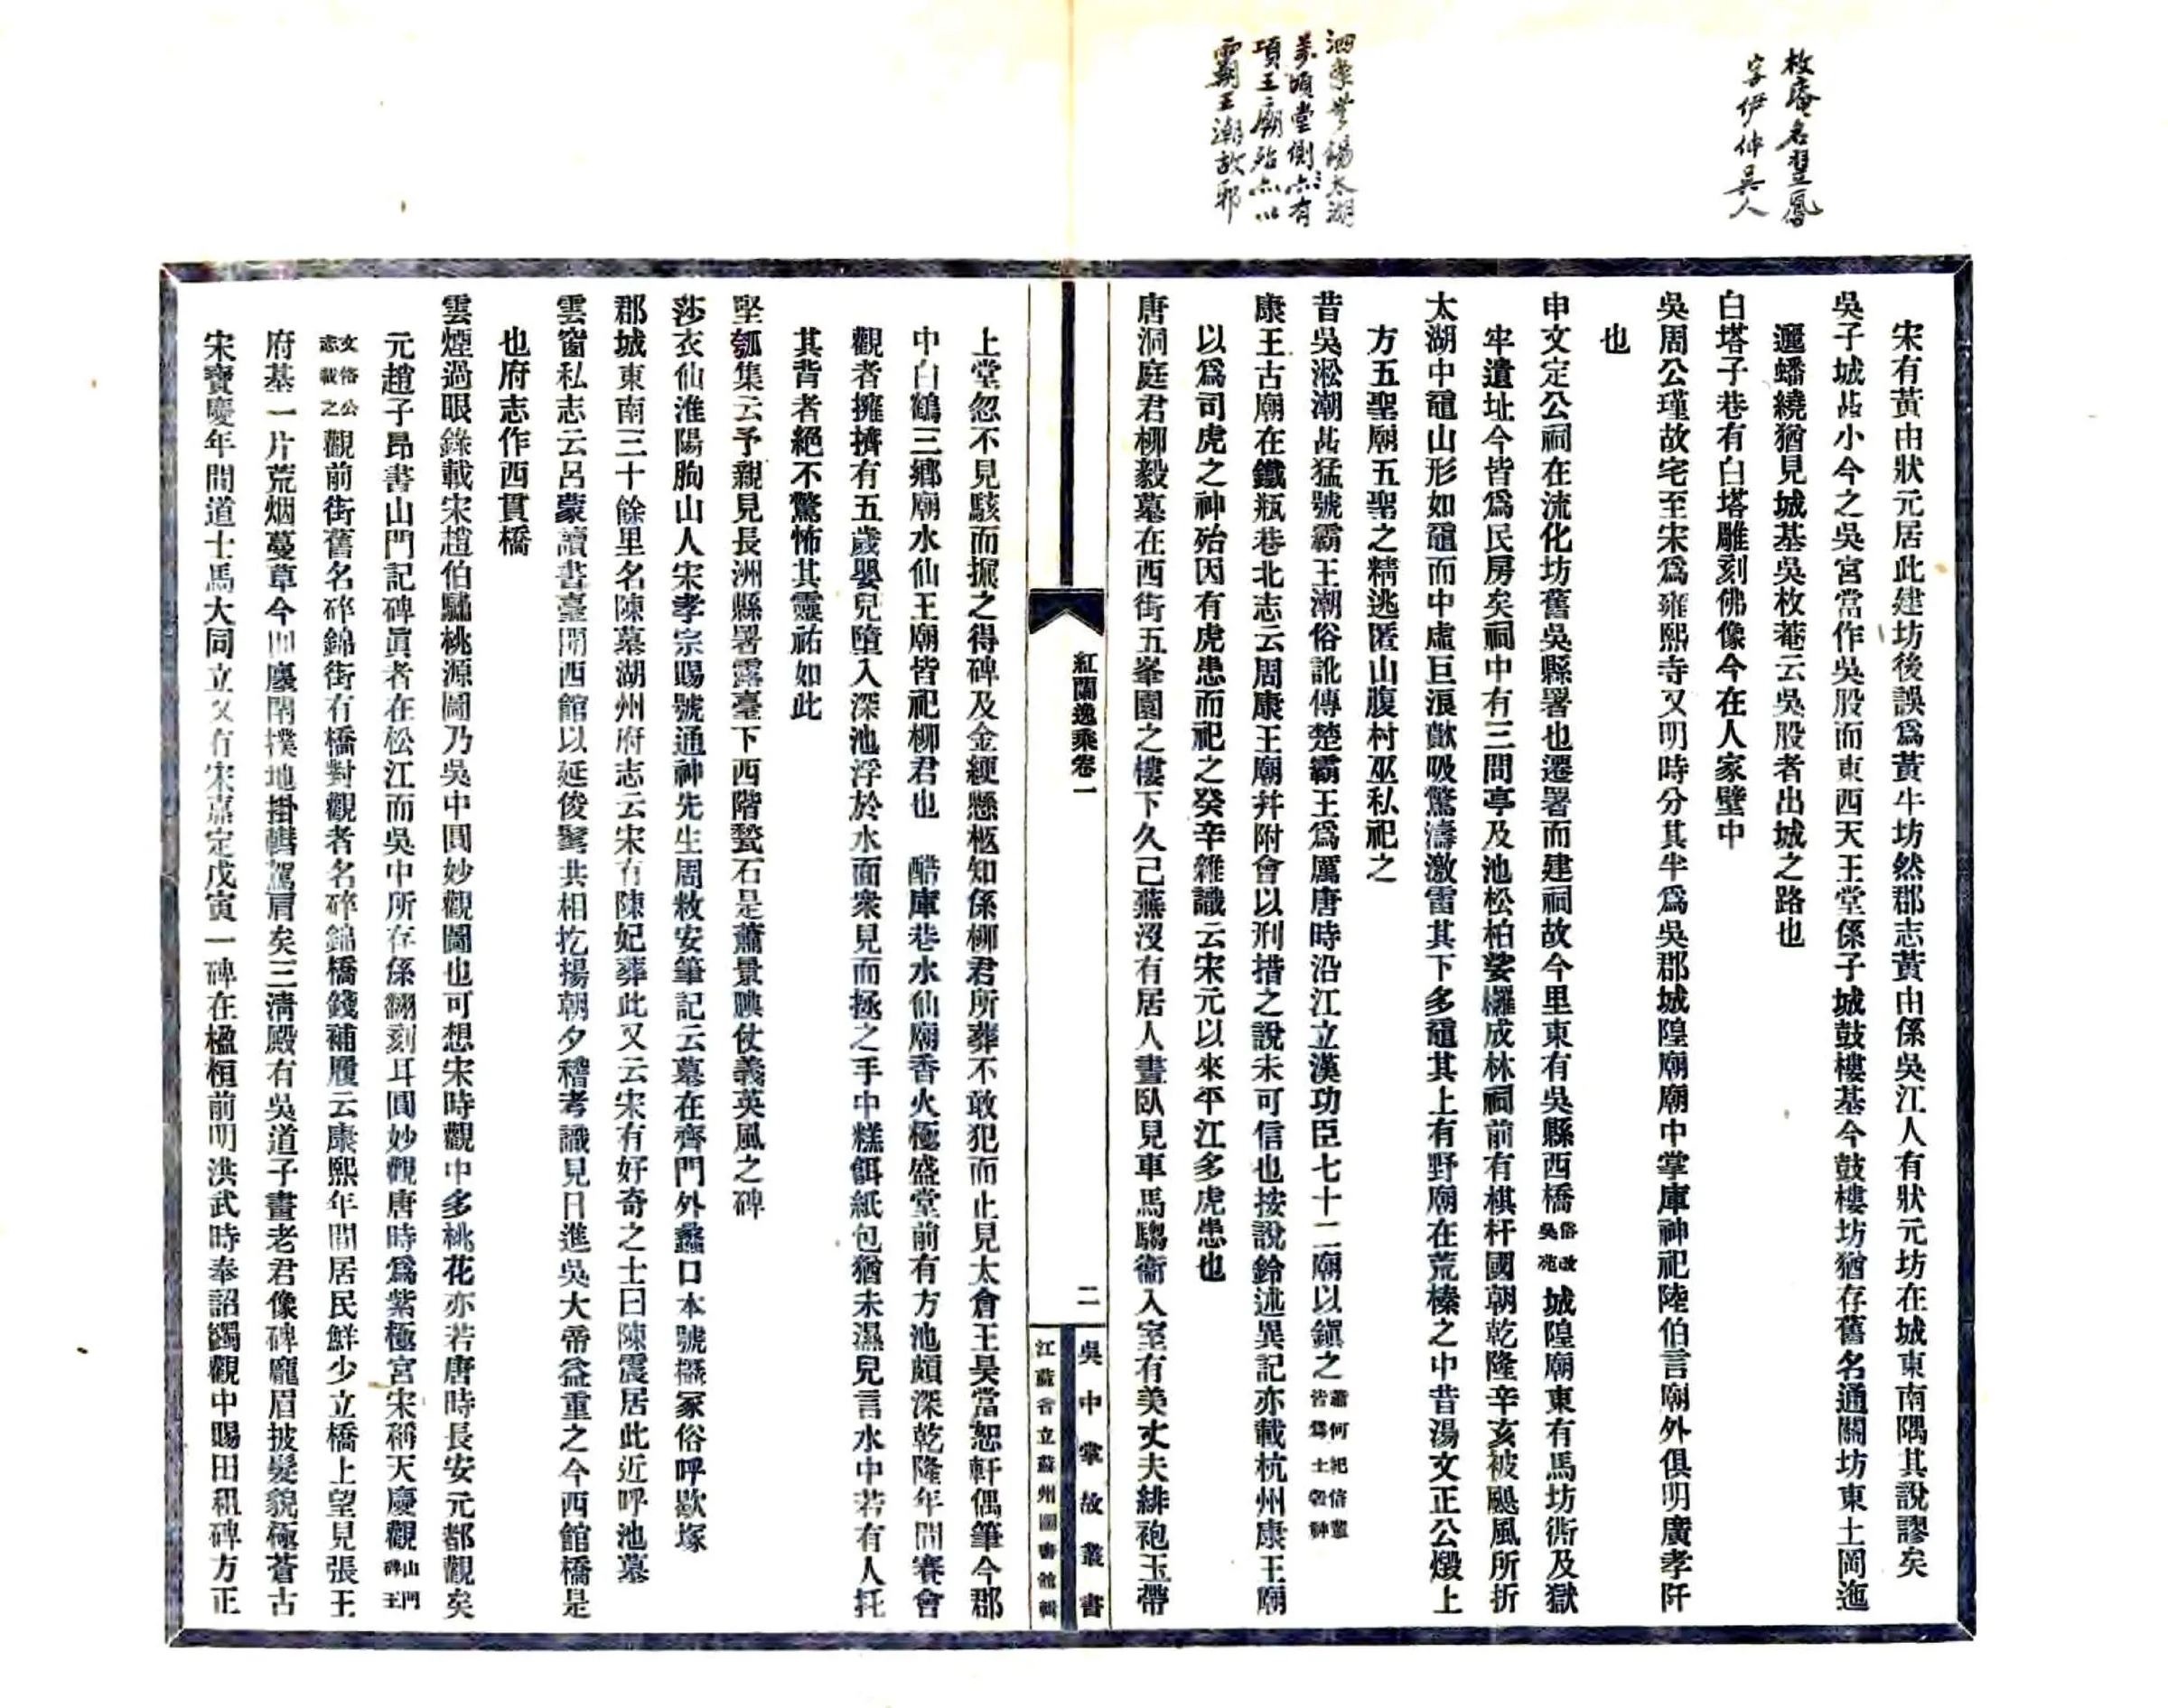 枚庵名翌鳳
字伊仲吳人
泗常無錫太湖
項堂側亦有
項王廟殆亦以
霸王潮故邪
宋有黃由狀元居此建坊後誤爲黃牛坊然郡志黃由係吳江人有狀元坊在城東南隅其說謬矣
吳子城甚小今之吳宮當作吳股而東西天王堂係子城鼓樓基今鼓樓坊猶存舊名通關坊東土岡迤
邐蟠繞猶見城基吳枚菴云吳股者出城之路也
白塔子巷有白塔雕刻佛像今在人家壁中
吳周公瑾故宅至宋爲雍熙寺又明時分其半爲吳郡城隍廟廟中掌庫神祀陸伯言廟外俱明廣孝阡
也
申文定公祠在流化坊舊吳縣署也遷署而建祠故今里東有吳縣西橋俗改吳苑城隍廟東有馬坊衖及獄
牢遺址今皆爲民房矣祠中有三間亭及池松柏娑欏成林祠前有棋杆國朝乾隆辛亥被颶風所折
太湖中黿山形如黿而中虛巨浪歕吸驚濤激雷其下多黿其上有野廟在荒榛之中昔湯文正公燬上
方五聖廟五聖之精逃匿山腹村巫私祀之
昔吳淞潮甚猛號霸王潮俗訛傳楚霸王爲厲唐時沿江立漢功臣七十二廟以鎭之蕭何祀信輩皆爲土穀神
康王古廟在鐵瓶巷北志云周康王廟幷附會以刑措之說未可信也按說鈴述異記亦載杭州康王廟
以爲司虎之神殆因有虎患而祀之癸辛雜識云宋元以來平江多虎患也
唐洞庭君柳毅墓在西街五峯園之樓下久已蕪沒有居人晝臥見車馬騶衞入室有美丈夫緋袍玉帶
紅蘭逸乘卷一
二
吳中掌故叢書
江蘇省立蘇州圖書館輯
上堂忽不見駭而掘之得碑及金綆懸柩知係柳君所葬不敢犯而止見太倉王昊當恕軒偶筆今郡
中白鶴三鄉廟水仙王廟皆祀柳君也　醋庫巷水仙廟香火極盛堂前有方池頗深乾隆年間賽會
觀者擁擠有五歲嬰兒墮入深池浮於水面衆見而拯之手中糕餌紙包猶未濕兒言水中若有人托
其背者絕不驚怖其靈祐如此
堅瓠集云予親見長洲縣署露臺下西階甃石是蕭景腆仗義英風之碑
莎衣仙淮陽朐山人宋孝宗賜號通神先生周敕安筆記云墓在齊門外蠡口本號攝冢俗呼歇塚
郡城東南三十餘里名陳墓湖州府志云宋有陳妃葬此又云宋有好奇之士曰陳震居此近呼池墓
雲窗私志云呂蒙讀書臺閒西館以延俊髦共相扢揚朝夕稽考識見日進吳大帝益重之今西館橋是
也府志作西貫橋
雲煙過眼錄載宋趙伯驌桃源圖乃吳中圓妙觀圖也可想宋時觀中多桃花亦若唐時長安元都觀矣
元趙子昂書山門記碑眞者在松江而吳中所存係翻刻耳圓妙觀唐時爲紫極宮宋稱天慶觀山門碑王
文恪公志載之觀前街舊名碎錦街有橋對觀者名碎錦橋錢補履云康熙年間居民鮮少立橋上望見張王
府基一片荒烟蔓草今則廛閈撲地掛轊駕肩矣三淸殿有吳道子畫老君像碑龐眉披髮貌極蒼古
宋寶慶年間道士馬大同立又有宋嘉定戊寅一碑在楹桓前明洪武時奉詔蠲觀中賜田租碑方正